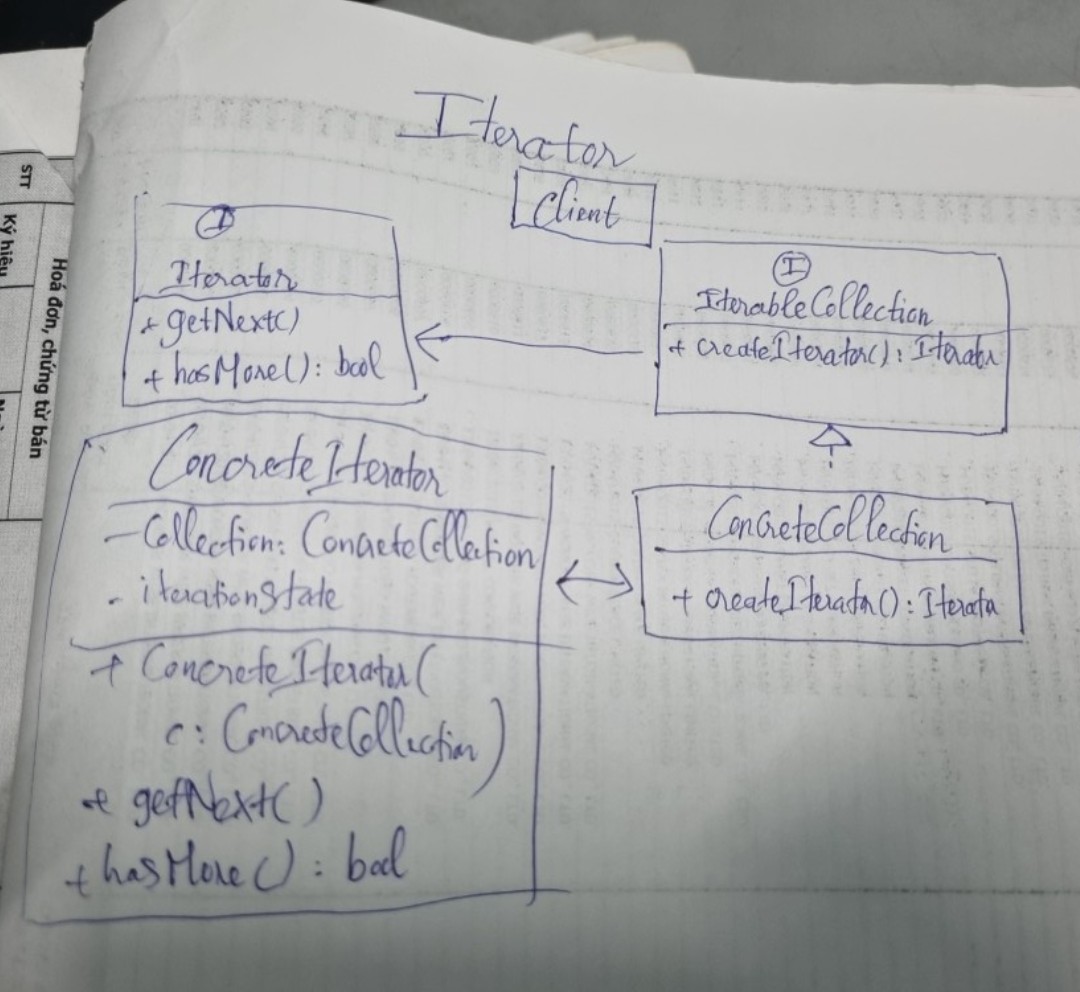 Iterator
Client
I
Iterator
+ getNext()
+ hasMore(): bool
I
IterableCollection
+ createIterator(): Iterator
ConcreteIterator
- Collection: ConcreteCollection
- iterationState
+ ConcreteIterator(
c: ConcreteCollection)
+ getNext()
+ hasMore(): bool
ConcreteCollection
+ createIterator(): Iterator
STT
Ký hiệu
Hoá đơn, chứng từ bán